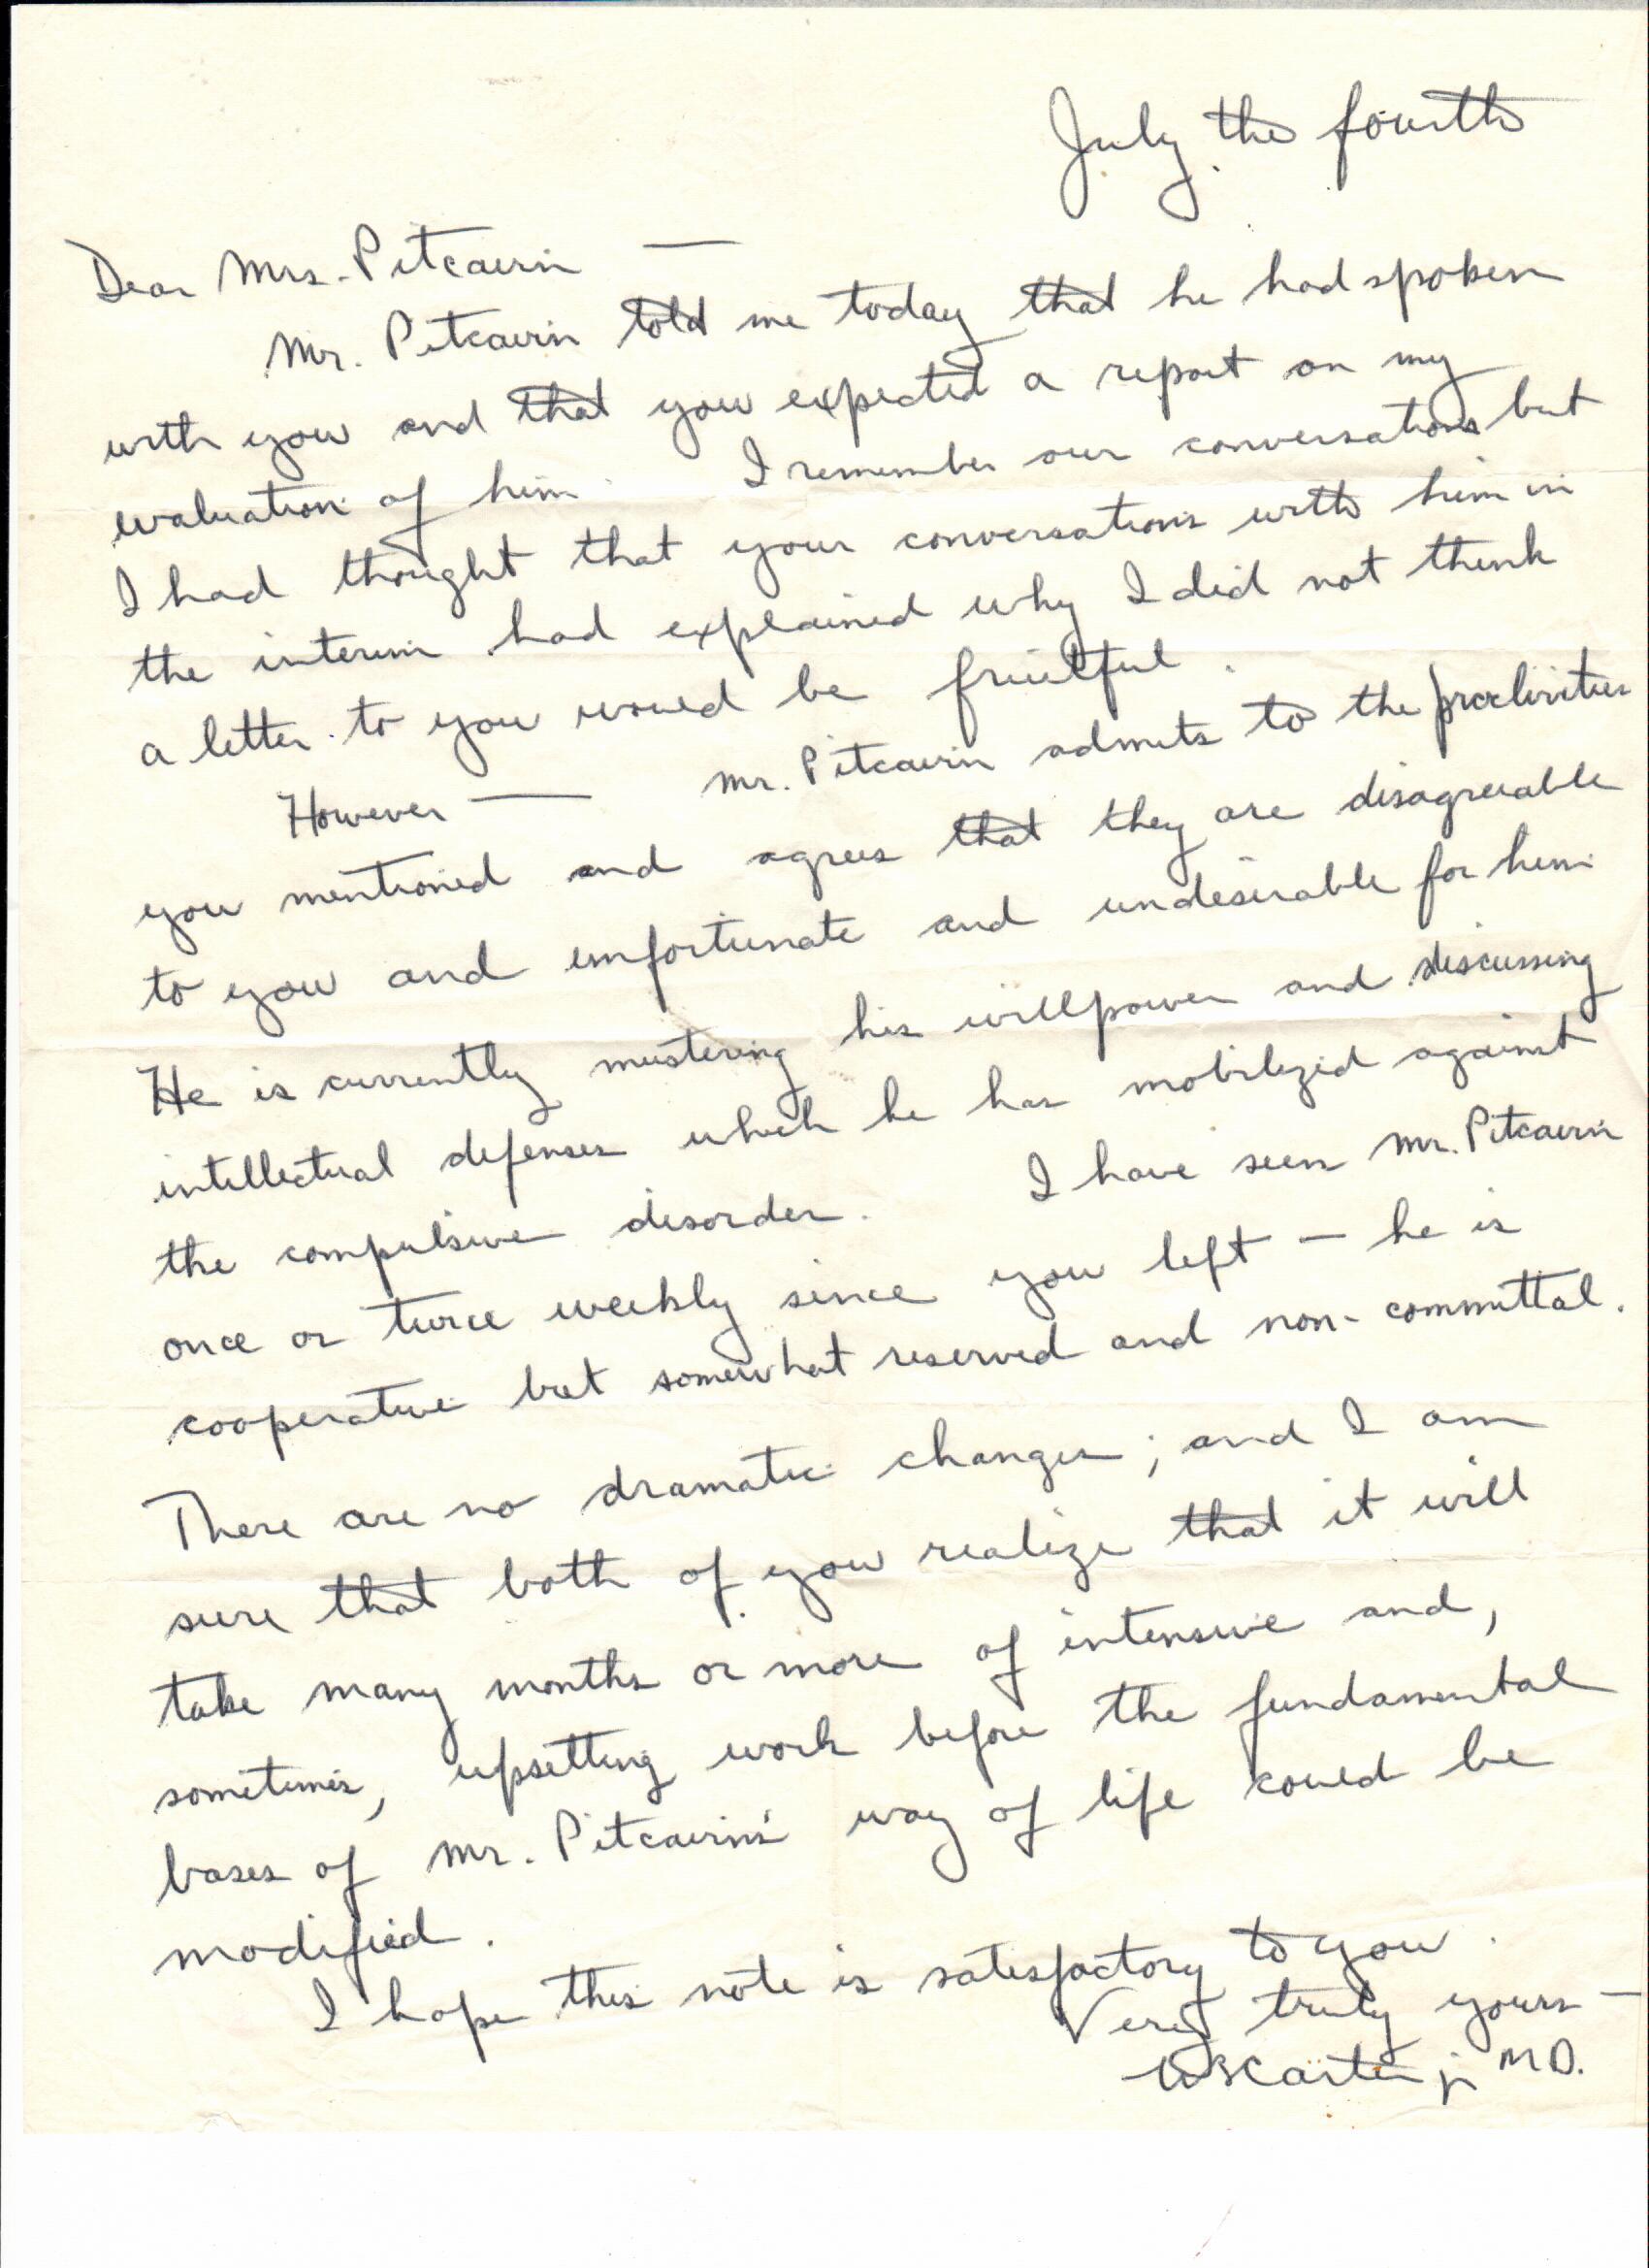 July the fourth
Dear Mrs. Pitcairn —
Mr. Pitcairn told me today that he had spoken
with you and that you expected a report on my
evaluation of him. I remember our conversations but
I had thought that your conversations with him in
the interim had explained why I did not think
a letter to you would be fruitful.
However — Mr. Pitcairn admits to the proclivities
you mentioned and agrees that they are disagreeable
to you and unfortunate and undesirable for him
He is currently mustering his willpower and discussing
intellectual defenses which he has mobilized against
the compulsive disorder. I have seen Mr. Pitcairn
once or twice weekly since you left — he is
cooperative but somewhat reserved and non-committal.
There are no dramatic changes; and I am
sure that both of you realize that it will
take many months or more of intensive and,
sometimes, upsetting work before the fundamental
bases of Mr. Pitcairn's way of life could be
modified.
I hope this note is satisfactory to you.
Very truly yours —
Carter jr MD.